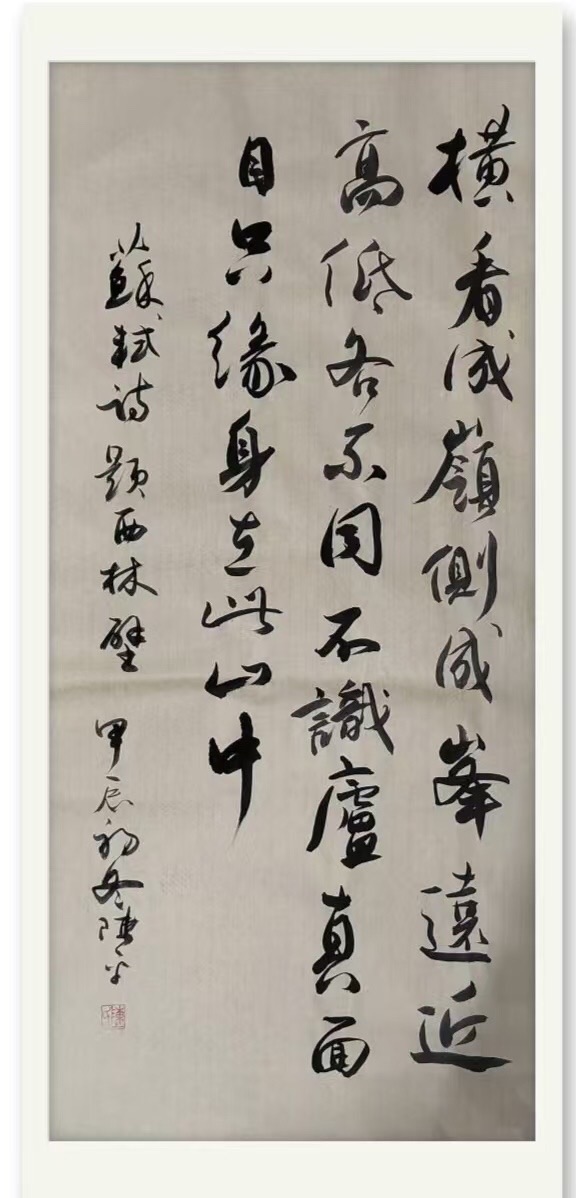 横看成嶺側成峯遠近
高低各不同不識廬真面
目只緣身在此山中
蘇軾詩題西林壁 甲辰初冬陳平